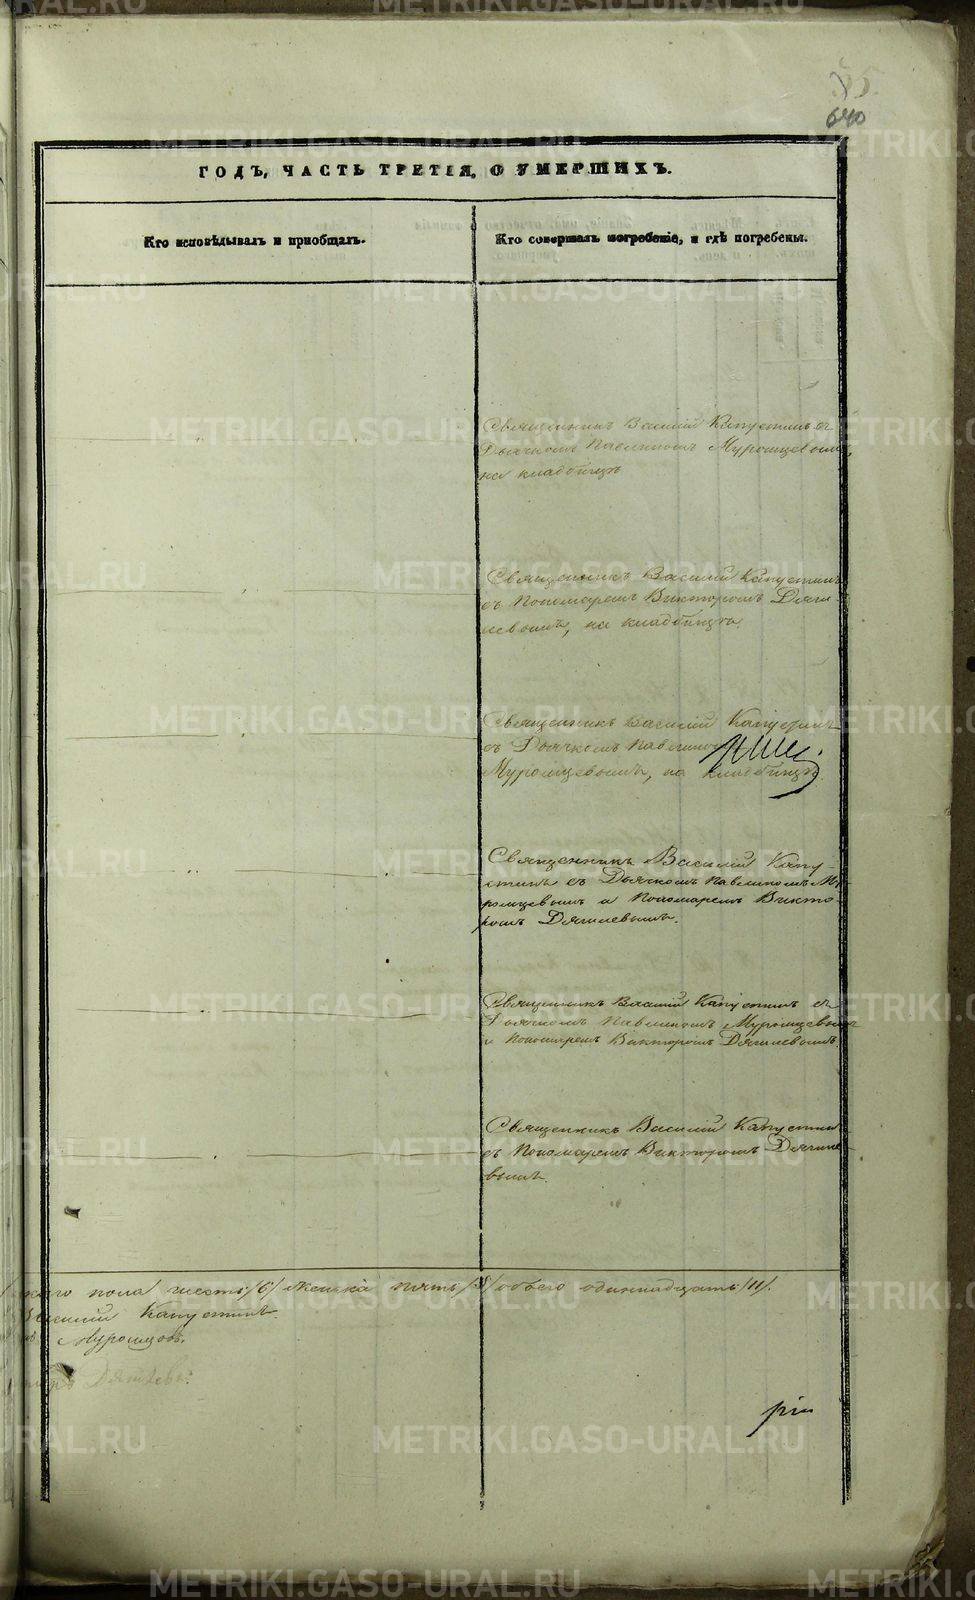 640
ГОДЪ, ЧАСТЬ ТРЕТІЯ, О УМЕРШИХЪ.
Кто исповѣдывалъ и пріобщалъ.
Кто совершалъ погребеніе, и гдѣ погребены.
Священникъ Василій Капустинъ съ
Дьячкомъ Павлиномъ Муромцевымъ,
на кладбищѣ
Священникъ Василій Капустинъ
съ Пономаремъ Викторомъ Дяги-
левымъ, на кладбищѣ.
Священникъ Василій Капустинъ
съ Дьячкомъ Павлиномъ
Муромцевымъ, на кладбищѣ.
Священникъ Василій Капу-
стинъ съ Дьячкомъ Павлиномъ Му-
ромцевымъ и Пономаремъ Викто-
ромъ Дягилевымъ.
Священникъ Василій Капустинъ съ
Дьячкомъ Павлиномъ Муромцевымъ
и Пономаремъ Викторомъ Дягилевымъ.
Священникъ Василій Капустинъ
съ Пономаремъ Викторомъ Дягиле-
вымъ.
пола шесть /6/ Женска пять /5/ обоего одиннадцать /11/.
Василій Капустинъ.
Муромцовъ.
Дягилевъ.
METRIKI.GASO-URAL.RU